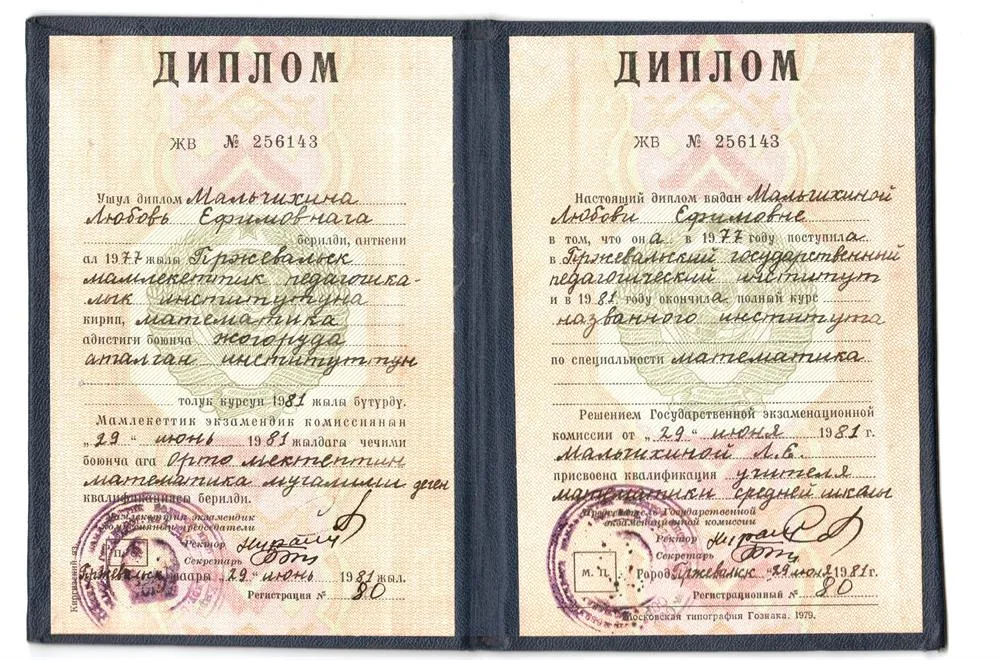 ДИПЛОМ
ЖВ № 256143
Ушул диплом Мальчихина
Любовь Ефимовнага
берилди, анткени
ал 1977 жылы Пржевальск
мамлекеттик педагогика-
лык институтуна
кирип, математика
адистиги боюнча жогоруда
аталган институттун
толук курсун 1981 жылы бүтүрдү.
Мамлекеттик экзамендик комиссиянын
„29“ июнь 1981 жылдагы чечими
боюнча ага орто мектептин
математика мугалими деген
квалификациясы берилди.
Мамлекеттик экзамендик
комиссиянын председатели
Ректор
Секретарь
Пржевальск шаары „29“ июнь 1981 жыл.
Регистрация № 80
ДИПЛОМ
ЖВ № 256143
Настоящий диплом выдан Мальчихиной
Любови Ефимовне
в том, что она в 1977 году поступила
в Пржевальский государственный
педагогический институт
и в 1981 году окончила полный курс
названного института
по специальности математика
Решением Государственной экзаменационной
комиссии от „29“ июня 1981 г.
Мальчихиной Л.Е.
присвоена квалификация учителя
математики средней школы
Председатель Государственной
экзаменационной комиссии
Ректор
Секретарь
М. П.
Город Пржевальск 29 июня 1981 г.
Регистрационный № 80
Московская типография Гознака. 1979.